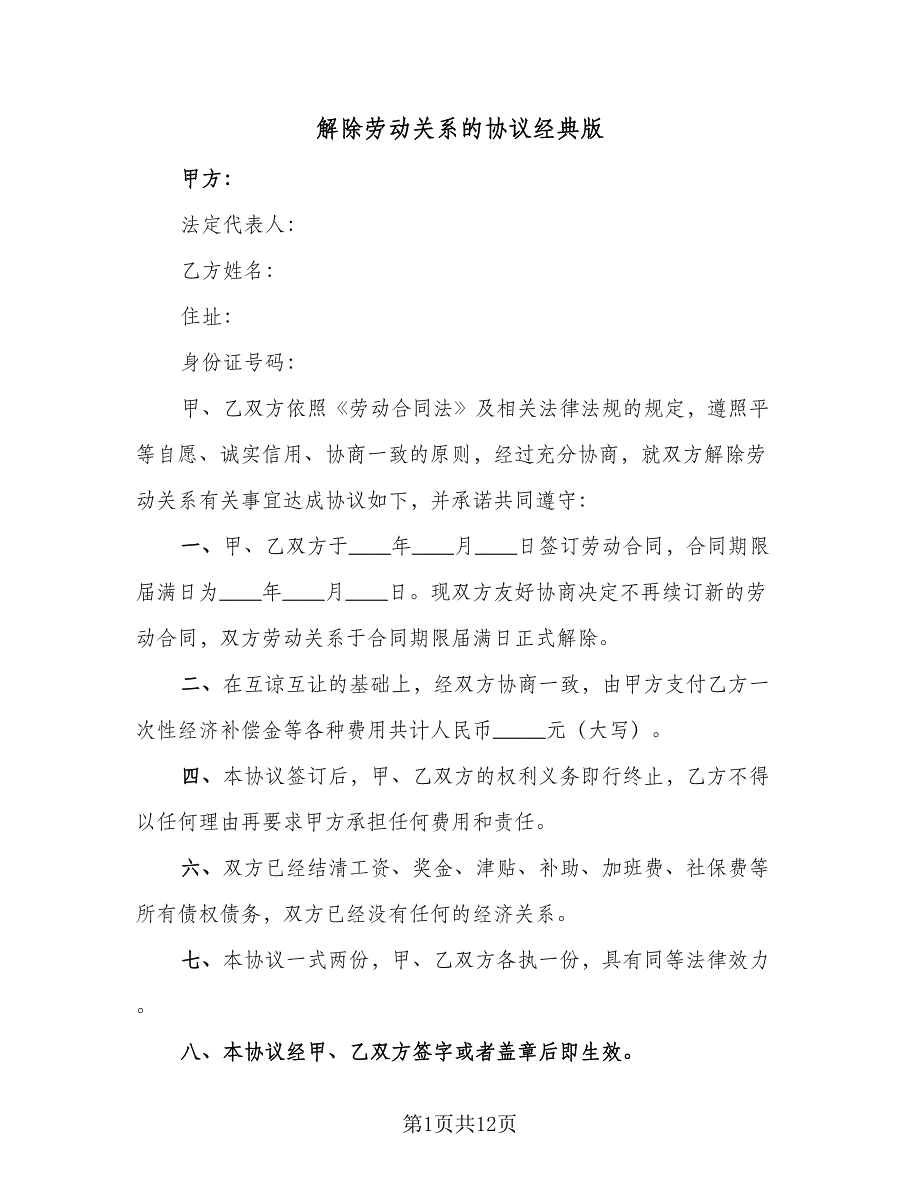 解除劳动关系的协议经典版
甲方：
法定代表人：
乙方姓名：
住址：
身份证号码：
甲、乙双方依照《劳动合同法》及相关法律法规的规定，遵照平
等自愿、诚实信用、协商一致的原则，经过充分协商，就双方解除劳
动关系有关事宜达成协议如下，并承诺共同遵守：
一、甲、乙双方于____年____月____日签订劳动合同，合同期限
届满日为____年____月____日。现双方友好协商决定不再续订新的劳
动合同，双方劳动关系于合同期限届满日正式解除。
二、在互谅互让的基础上，经双方协商一致，由甲方支付乙方一
次性经济补偿金等各种费用共计人民币_____元（大写）。
四、本协议签订后，甲、乙双方的权利义务即行终止，乙方不得
以任何理由再要求甲方承担任何费用和责任。
六、双方已经结清工资、奖金、津贴、补助、加班费、社保费等
所有债权债务，双方已经没有任何的经济关系。
七、本协议一式两份，甲、乙双方各执一份，具有同等法律效力
。
八、本协议经甲、乙双方签字或者盖章后即生效。
第1页共12页